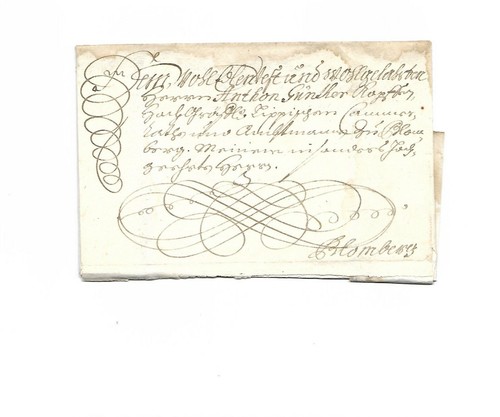 Dem Woll Ehrnvest und Wollgelahrten
Herrn Anthon Günther
Hochgräffl: Lippischen Cammer
Rath und Ambtmann zu Blom
berg. Meinem insonders Hoch
geehrten Herrn.
Blomberg